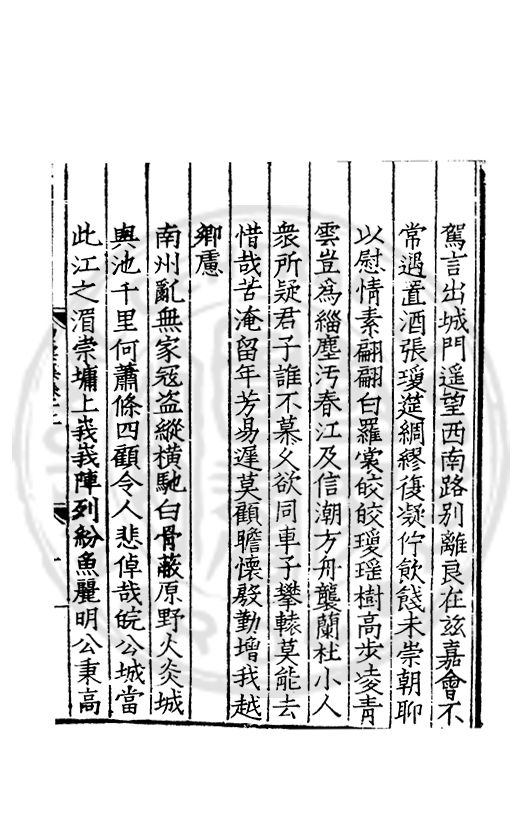 駕言出城門遥望西南路别離良在兹嘉會不
常遇置酒張瓊筵綢繆復凝佇飲餞未崇朝聊
以慰情素翩翩白羅裳皎皎瓊瑶樹高步凌青
雲豈為緇塵汚春江及信潮方舟襲蘭杜小人
衆所疑君子誰不慕乆欲同車子攀轅莫能去
惜哉苦淹留年芳易遲莫顧瞻懷殷勤增我越
鄉慮
南州亂無家冦盗縱横馳白骨蔽原野火炎城
與池千里何蕭條四顧令人悲倬哉皖公城當
此江之湄崇墉上峩峩陣列紛魚麗明公秉高